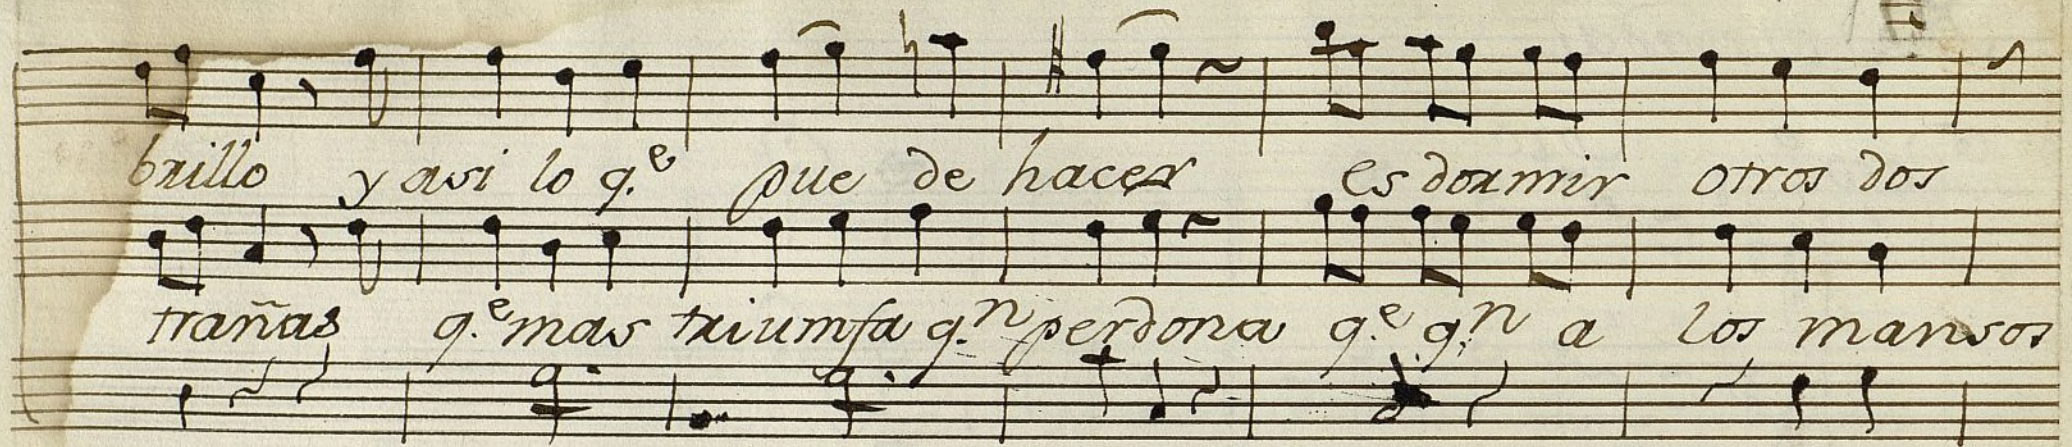 brillo y asi lo q.e puede hacer es dormir otros dos
trañas q.e mas triumfa q.n perdona q.e q.n a los mansos